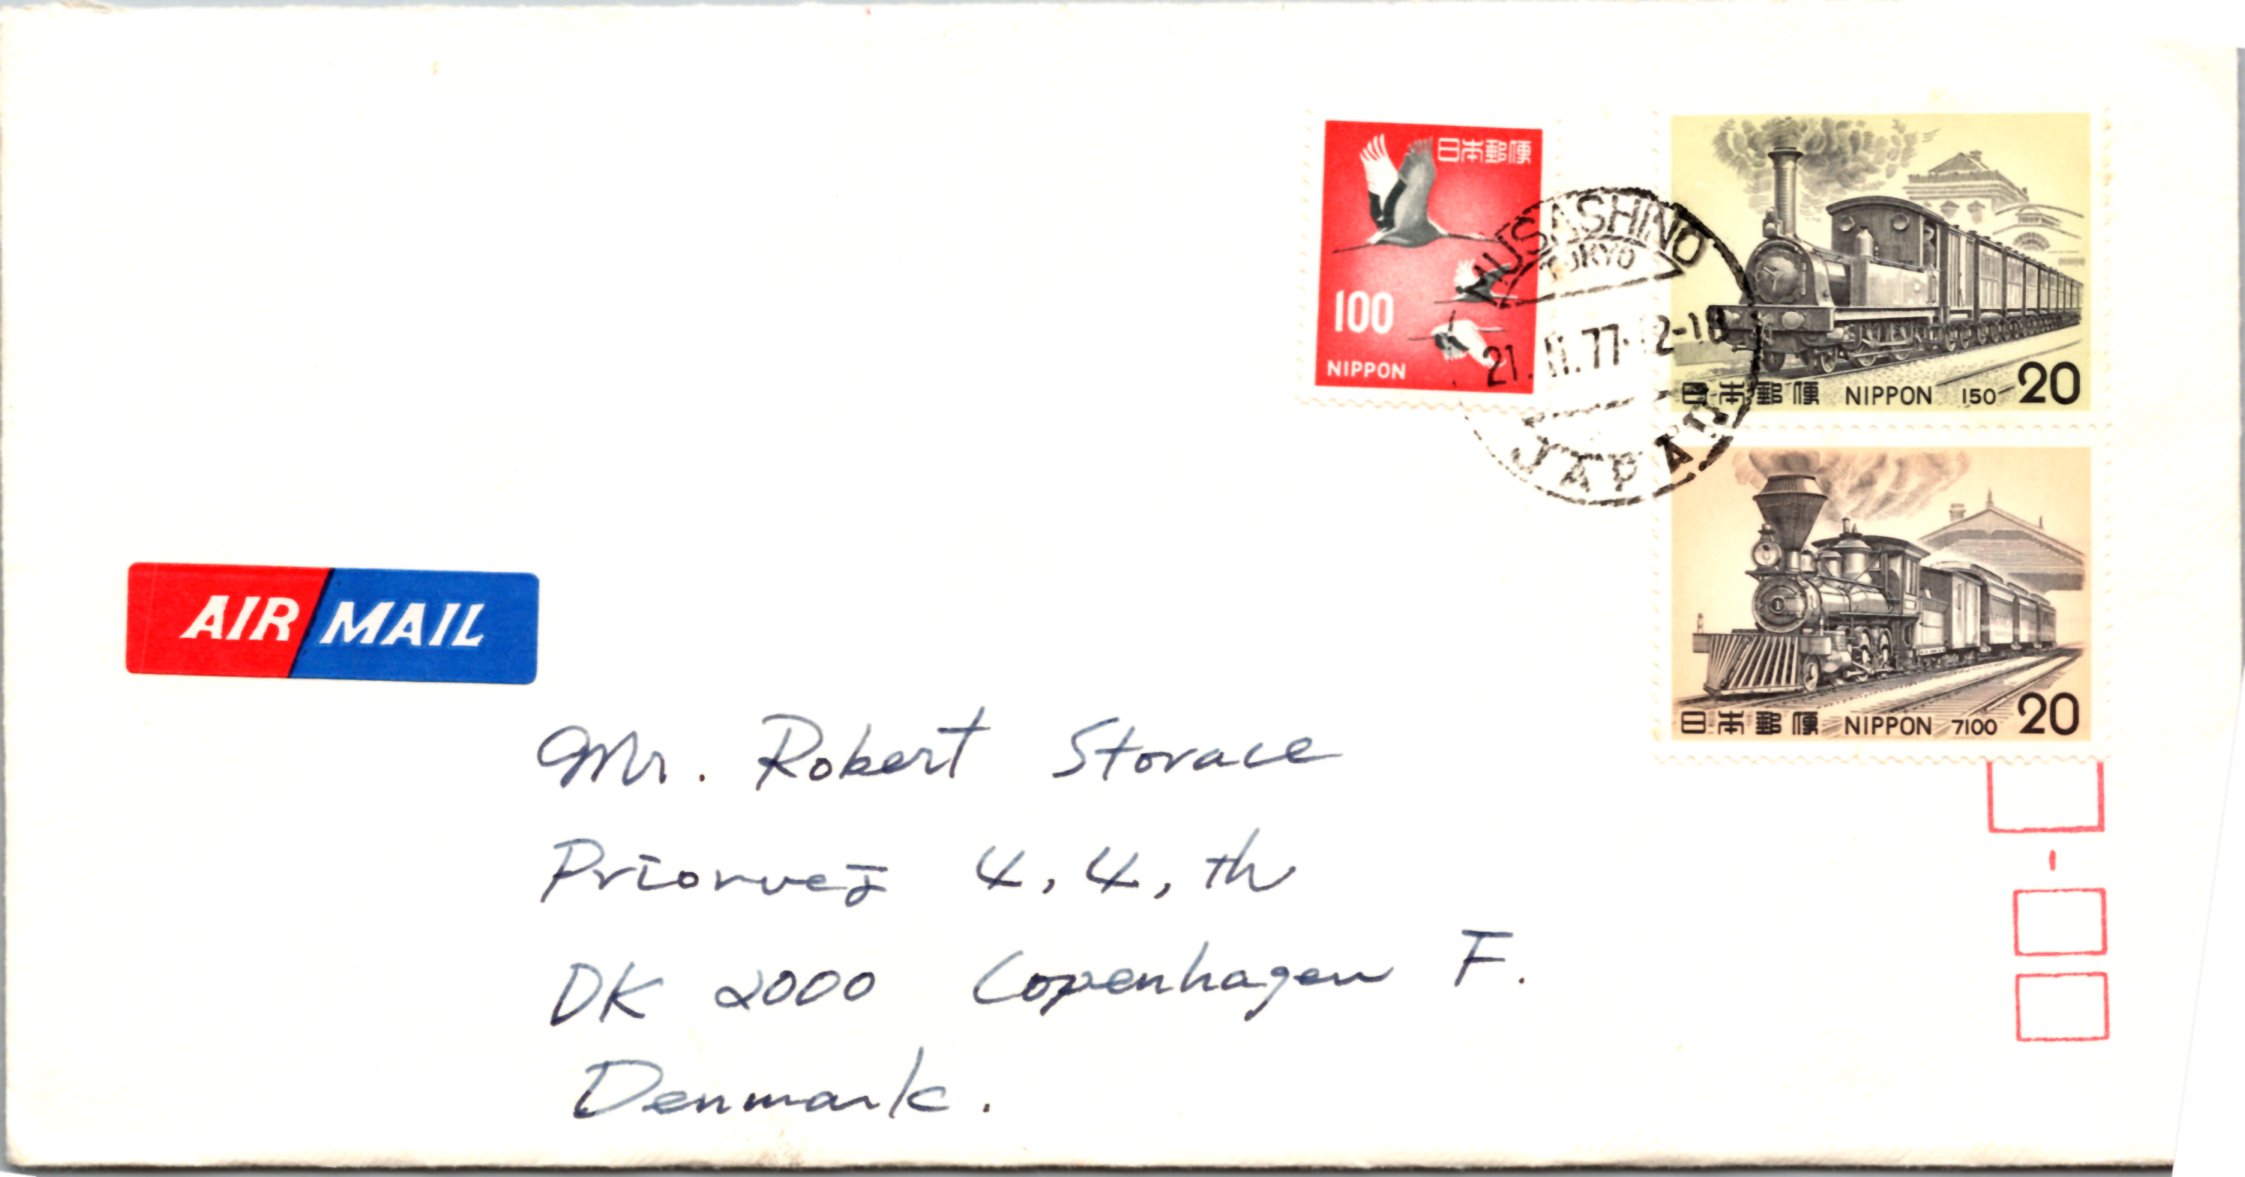 日本郵便
100
NIPPON
MUSASHINO
TOKYO
21.II.77.12-18
JAPAN
日本郵便 NIPPON 150 20
日本郵便 NIPPON 7100 20
AIR MAIL
Mr. Robert Storace
Priorvej 4, 4, th
DK 2000 Copenhagen F.
Denmark.